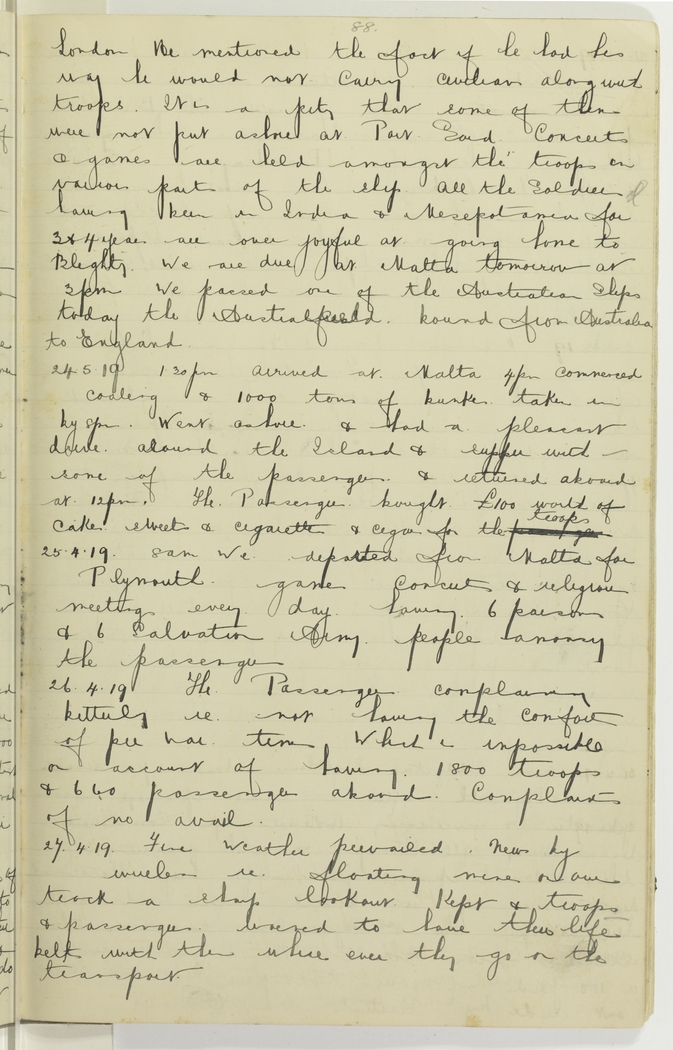 88.
London He mentioned the fact if he had his
way he would not carry civilians along with
troops. It is a pity that some of them
were not put ashore at Port Said. Concerts
& games are held amongst the troops on
various parts of the ship. All the Soldiers
having been in India & Mesepotamia for
3 & 4 years are over joyful at going home to
Blighty. We are due at Malta tomorrow at
3pm We passed one of the Australian Ships
today the Australfield. bound from Australia
to England.
24.5.19 1 30pm arrived at Malta 4pm commenced
coaling & 1000 tons of bunker taken in
by 8pm. Went ashore & had a pleasant
drive around the Island & supper with
some of the passengers & returned aboard
at 12pm. The Passengers bought £100 worth of
cakes sweets & cigarettes & cigars for the troops
25.4.19. 8am We departed from Malta for
Plymouth. games Concerts & religious
meetings every day having 6 parsons
& 6 Salvation Army people among
the passengers
26.4.19 The Passengers complaining
bitterly re not having the comforts
of pre War times which is impossible
on account of having 1800 troops
& 600 passengers aboard. Complaints
of no avail.
27.4.19. Fine Weather prevailed. News by
wireless re floating mines on our
track a sharp lookout Kept & troops
& passengers to have their life
belts with them where ever they go on the
transport.